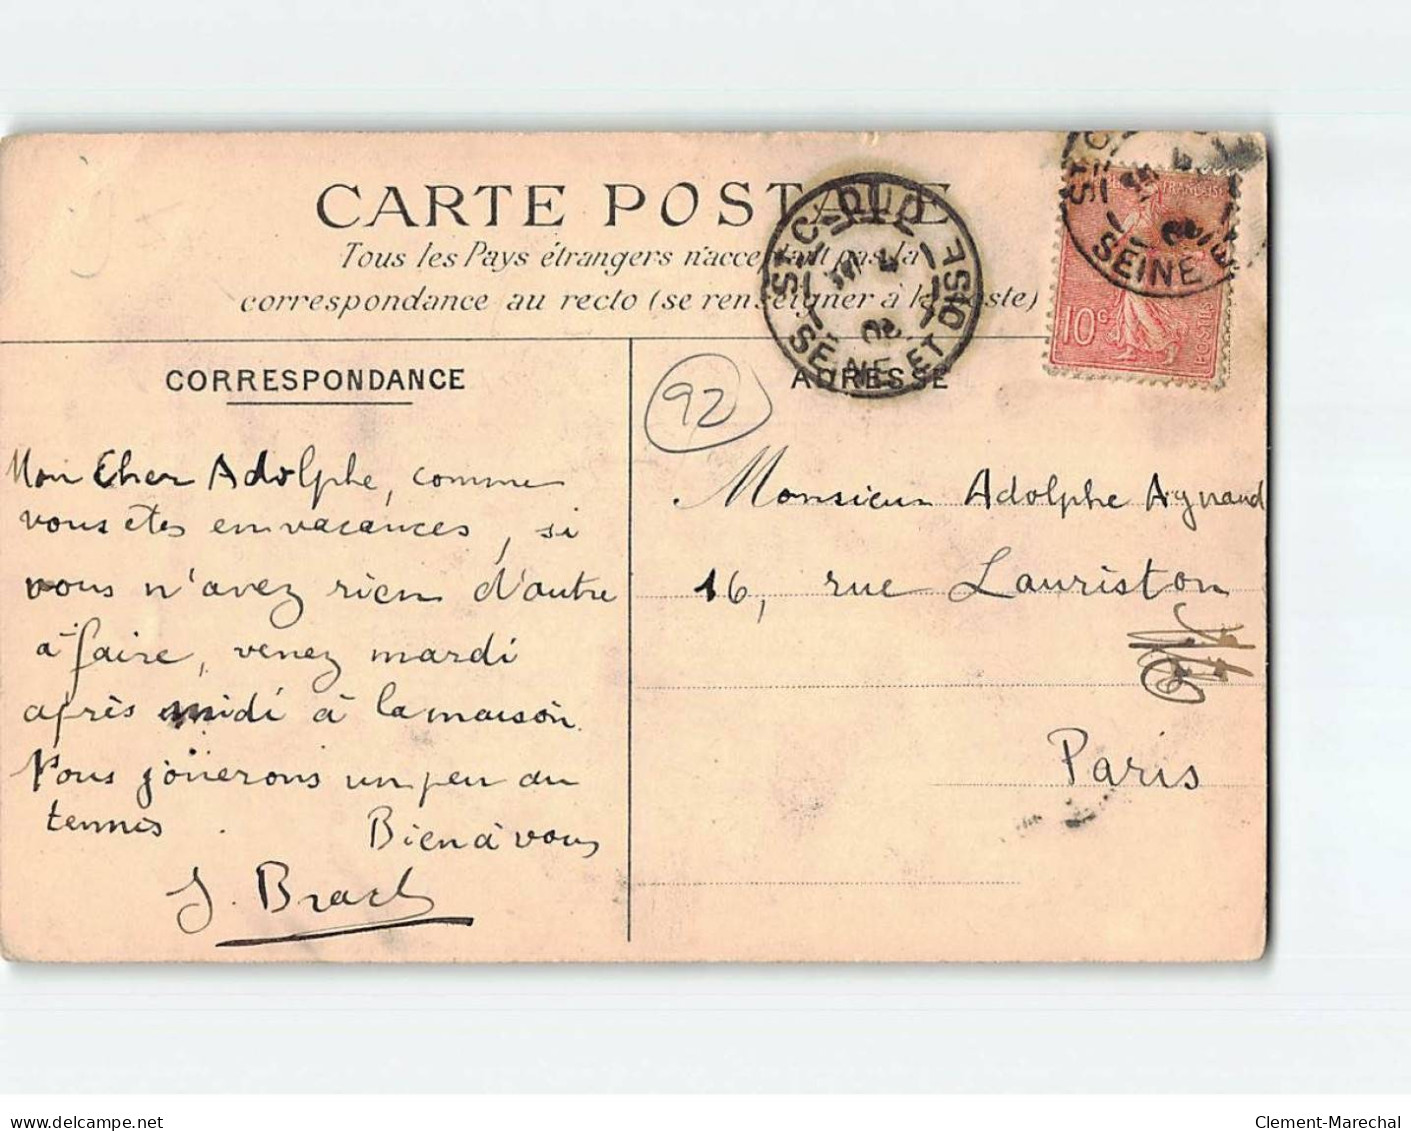 CARTE POSTALE
Tous les Pays étrangers n'acceptant pas la
correspondance au recto (se renseigner à la Poste)
ST C-OUD
SEINE ET OISE
SEINE E
10c
POSTES
CORRESPONDANCE
ADRESSE
92
Mon Cher Adolphe, comme
vous êtes en vacances, si
vous n'avez rien d'autre
à faire, venez mardi
après midi à la maison.
Nous jouerons un peu au
tennis. Bien à vous
J. Brach
Monsieur Adolphe Aynaud
16, rue Lauriston
Paris
www.delcampe.net
Clement-Marechal